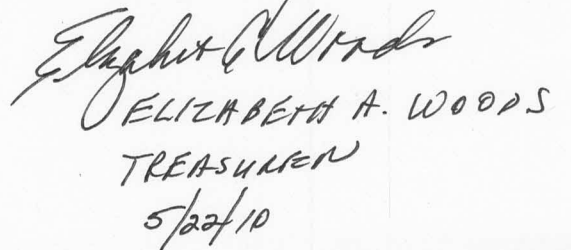 Elizabeth A Woods
ELIZABETH A. WOODS
TREASURER
5/22/10